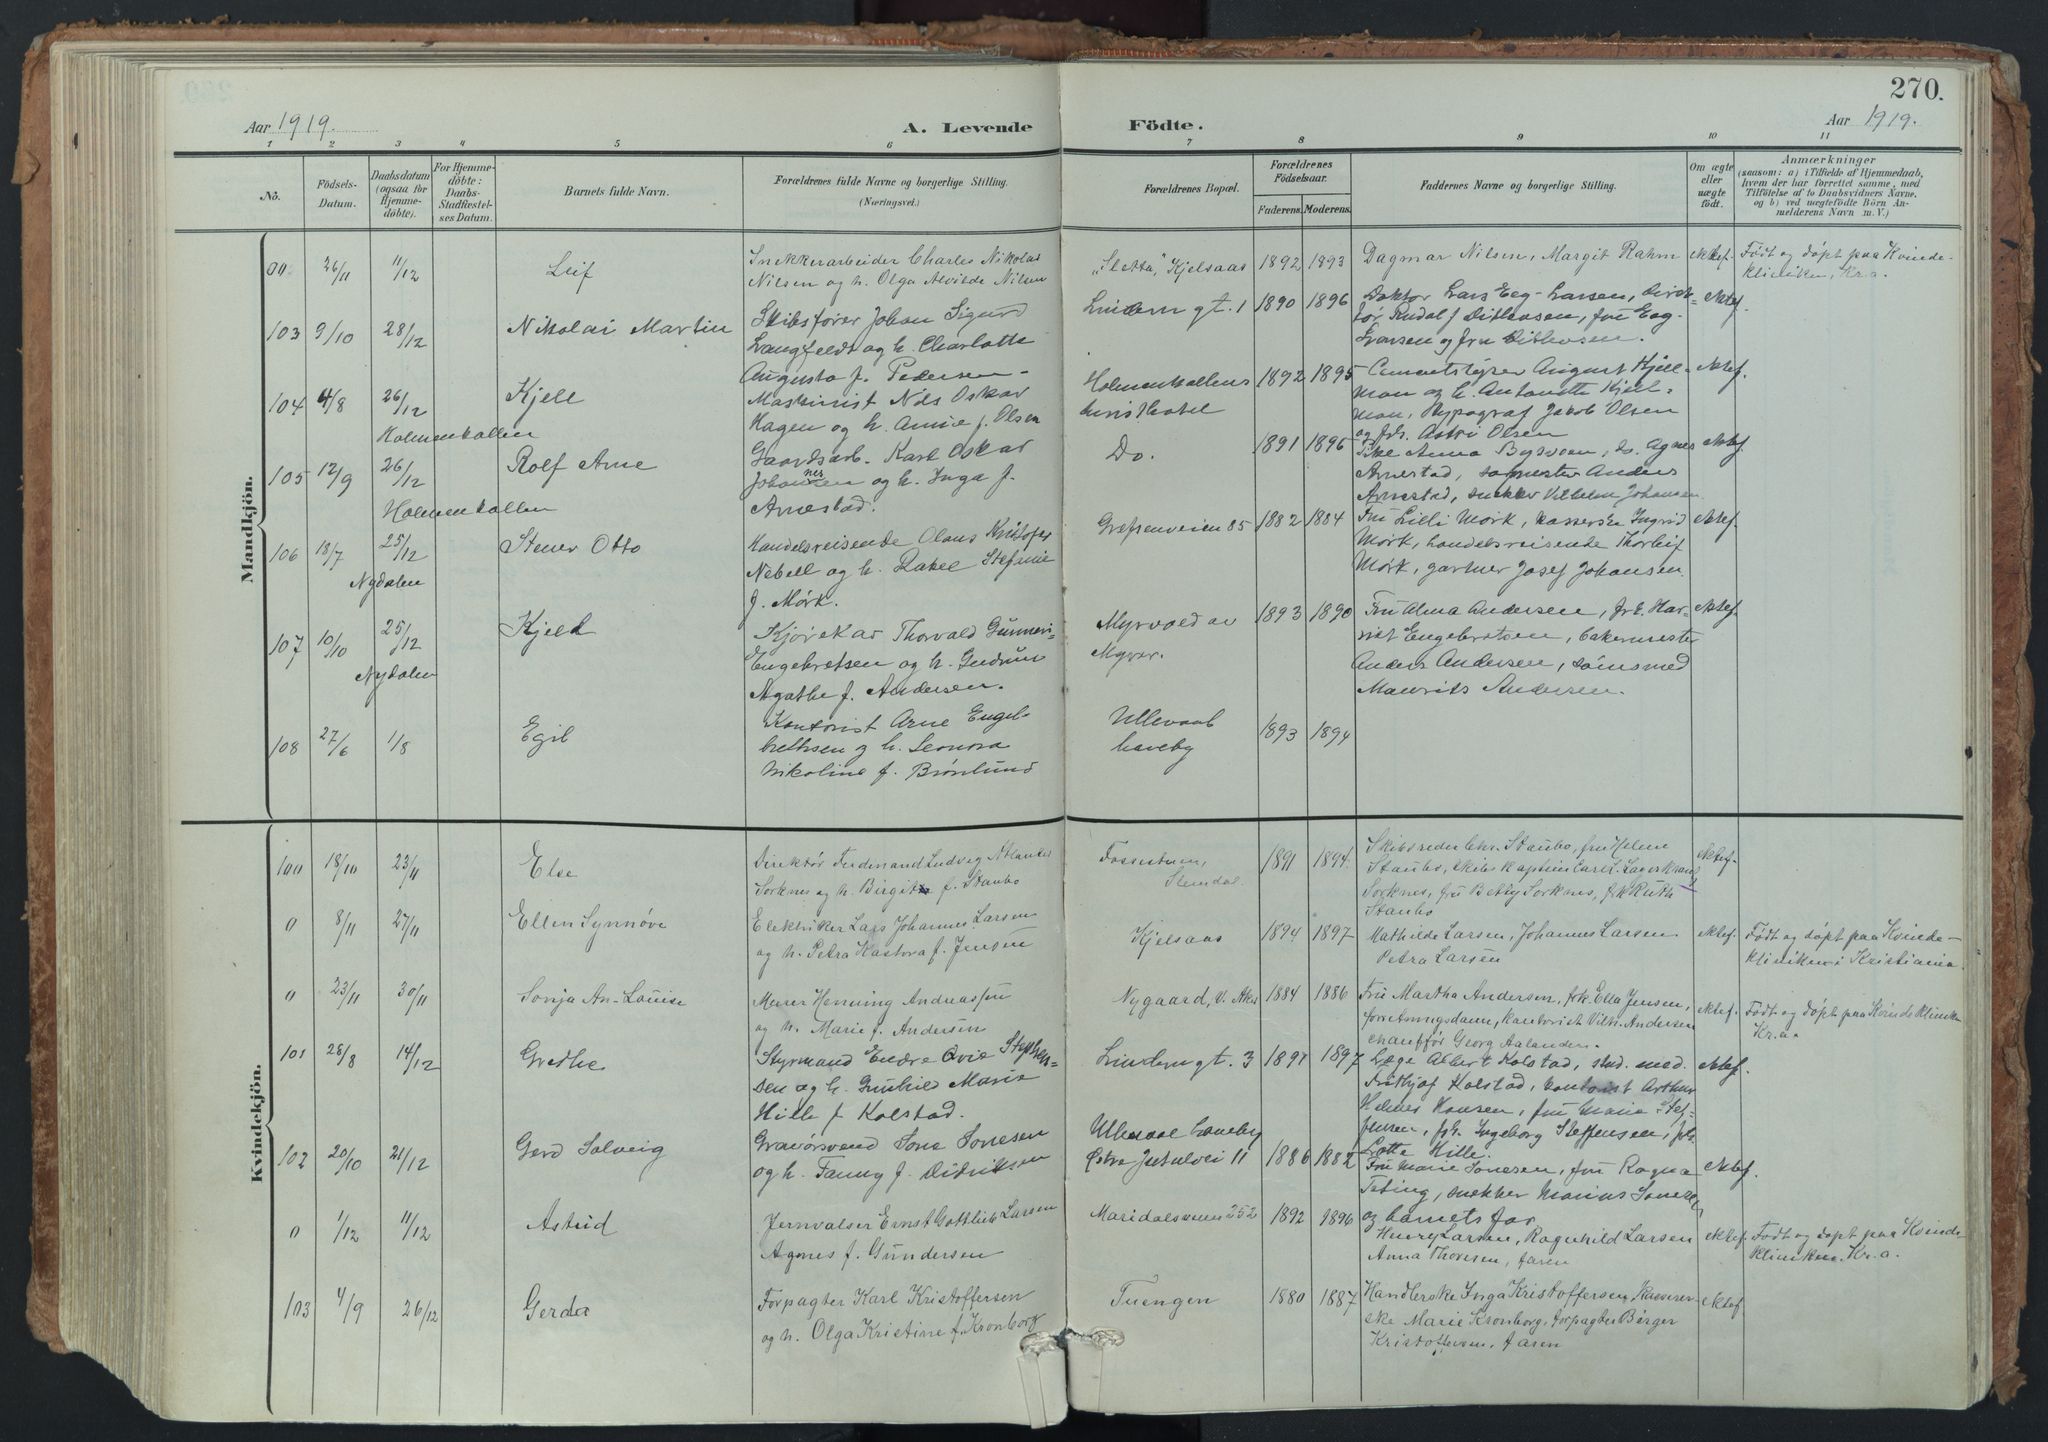 270.
Aar 1919.
A. Levende
Födte.
Aar 1919.
1 2 3 4 5 6 7 8 9 10 11
No.
Födsels-Datum.
Daabsdatum (ogsaa for Hjemmedöbte).
For Hjemmedöbte: Daabs-Stadfæstelses Datum.
Barnets fulde Navn.
Forældrenes fulde Navne og borgerlige Stilling.
(Næringsvei.)
Forældrenes Bopæl.
Forældrenes Födselsaar.
Faderens. Moderens.
Faddernes Navne og borgerlige Stilling.
Om ægte eller uægte födt.
Anmærkninger
(saasom: a) i Tilfælde af Hjemmedaab, hvem der har forrettet samme, med Tilföielse af to Daabsvidners Navne, og b) ved uægtefödte Börn Anmelderens Navn m. V.)
Mandkjön.
26/11 11/12 Leif
Snekkerarbeider Charles Nikolai
Nilsen og h. Olga Alvilde Nilsen
"Sletta," Kjelsaas 1892 1893
Dagmar Nilsen, Margit Rahm
Ektef.
Født og døpt paa Kvinde-
kliniken, Kr.a.
103 9/10 28/12 Nikolai Martin
Skibsfører Johan Sigurd
Langfeldt og h. Charlotte
Augusta f. Pedersen
Lindern gt. 1 1890 1896
Doktor Lars Eeg-Larsen, direk-
tør Rudolf Ditlevsen, fru Eeg-
Larsen og fru Ditlevsen.
Ektef.
104 4/8 26/12 Kjell
Holmenkollen
Maskinist Nils Oskar
Hagen og h. Annie f. Olsen
Holmenkollens
turisthotel 1892 1895
August Kjell-
man og h. Antonette Kjell-
man, typograf Jakob Olsen
og frk. Astri Olsen
Ektef.
105 12/9 26/12 Rolf Arne
Holmenkollen
Gaardsarb. Karl Oskar
Johannessen og h. Inga f.
Arnestad.
Do. 1891 1896
Pike Anna Bysveen, do. Agnes
Arnestad, Anders
Arnestad, snekker Vilhelm Johansen
Ektef.
106 18/7 25/12 Stener Otto
Nydalen
Handelsreisende Olaus Kristofer
Nebell og h. Rakel Stefanie
f. Mørk.
Grefsenveien 85 1882 1884
Fru Lilli Mørk, kasserske Ingrid
Mørk, handelsreisende Thorleif
Mørk, gartner Josef Johansen.
Ektef.
107 10/10 25/12 Kjell
Nydalen
Kjørekar Thorvald
Engebretsen og h. Gudrun
Agathe f. Andersen.
Myrvold av
Myrer. 1893 1890
Fru Alma Andersen, frk. Har-
riet Engebretsen, bakermester
Anders Andersen, sømsmed
Maurits Andersen.
Ektef.
108 27/6 1/8 Egil
Kontorist Arne Engel-
brethsen og h. Leonora
Nikoline f. Brønlund
Ullevaal
haveby 1893 1894
Kvindekjön.
100 18/10 23/11 Else
Direktør Ferdinand Ludvig
Sorknes og h. Birgit f. Staubo
Fossestuen,
Stendal. 1891 1894.
Skibsreder Chr. Staubo, fru Helene
Staubo, skibskaptein Carl
Sorknes, fru Betsy Sorknes, frk Ruth
Staubo
Ektef.
0 8/11 27/11 Ellen Synnøve
Elektriker Lars Johannes Larsen
og h. Petra Hastora f. Jensen
Kjelsaas 1894 1897
Mathilde Larsen, Johannes Larsen
Petra Larsen
Ektef.
Født og døpt paa Kvinde-
kliniken i Kristiania.
0 23/11 30/11 Sonja An-Louise
Murer Henning Andreassen
og h. Marie f. Andersen
Nygaard, v. Aker 1884 1886
Fru Martha Andersen, frk. Ella Jensen,
forretningsdame, kontorist Vilh. Andersen
chauffør Georg Aalander.
Ektef.
Født og døpt paa Kvindekliniken
Kr.a.
101 28/8 14/12 Grethe
Styrmand Endre Qvie Stephen-
sen og h. Gunhild Marie
Hille f. Kolstad.
Lindern gt. 3 1891 1897
Læge Albert Kolstad, stud. med.
Fridtjof Kolstad, kontorist Arthur
Helmer Hansen, fru Marie Stef-
fensen, frk. Ingeborg Steffensen, frk.
Lotte Hille.
Ektef.
102 20/10 21/12 Gerd Solveig
Gravørsvend Jonesen
og h. Fanny f. Didriksen
Ullevaal haveby
Østre Jutulvei 11 1886 1882
Fru Marie Jonesen, fru Ragna
Teting, snekker Marius Jonesen
og barnets far
Ektef.
0 1/12 11/12 Astrid
Jernvalser Ernst Gottlieb Larsen
Agnes f. Gundersen
Maridalsveien 252 1892 1896
Henry Larsen, Ragnhild Larsen
Anna Thoresen, faren
Ektef.
Født og døpt paa Kvinde-
kliniken. Kr.a.
103 4/9 26/12 Gerda
Forpagter Karl Kristoffersen
og h. Olga Kristine f. Kronborg
Tuengen 1880 1887
Handlerske Inga Kristoffersen, kasserer-
ske Marie Kronborg, forpagter Birger
Kristoffersen, faren
Ektef.